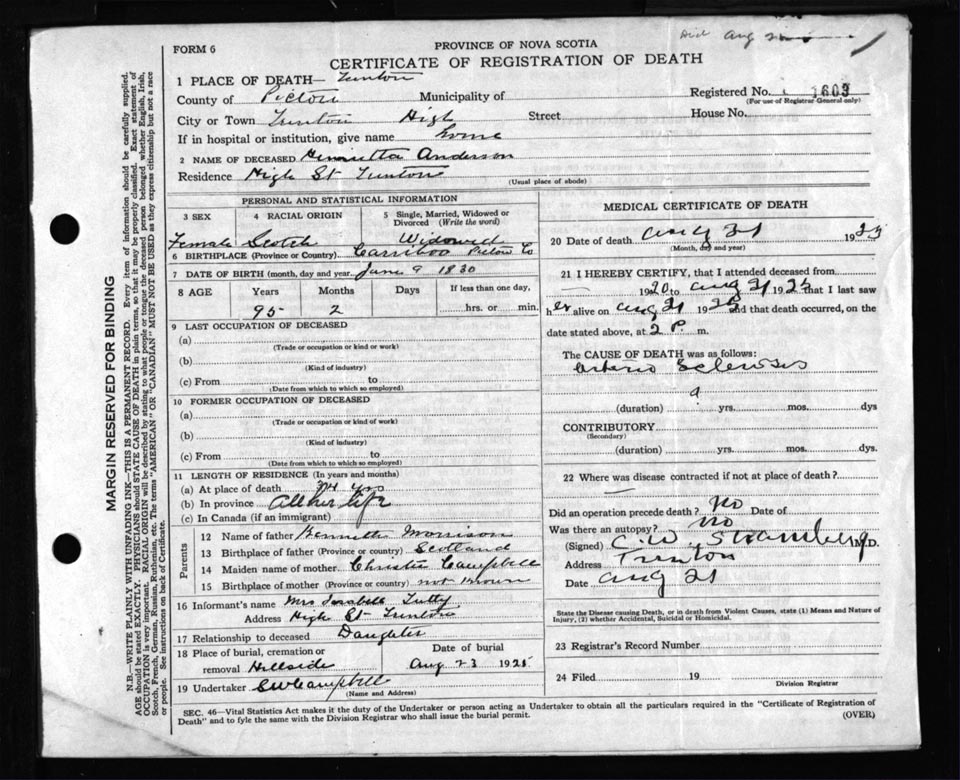 Died Aug 21
FORM 6
PROVINCE OF NOVA SCOTIA
CERTIFICATE OF REGISTRATION OF DEATH
1 PLACE OF DEATH— Trenton
County of Pictou Municipality of
Registered No. 1603
(For use of Registrar General only)
City or Town Trenton High Street House No.
If in hospital or institution, give name home
2 NAME OF DECEASED Henrietta Anderson
Residence High St Trenton
(Usual place of abode)
PERSONAL AND STATISTICAL INFORMATION
3 SEX 4 RACIAL ORIGIN 5 Single, Married, Widowed or Divorced (Write the word)
Female Scotch Widowed
6 BIRTHPLACE (Province or Country) Carriboo Pictou Co
7 DATE OF BIRTH (month, day and year) June 9 1830
8 AGE Years Months Days If less than one day,
95 2 hrs. or min.
9 LAST OCCUPATION OF DECEASED
(a)
(Trade or occupation or kind or work)
(b)
(Kind of industry)
(c) From to
(Date from which to which so employed)
10 FORMER OCCUPATION OF DECEASED
(a)
(Trade or occupation or kind or work)
(b)
(Kind of industry)
(c) From to
(Date from which to which so employed)
11 LENGTH OF RESIDENCE (In years and months)
(a) At place of death yrs
(b) In province All her life
(c) In Canada (if an immigrant)
Parents
12 Name of father Kenneth Morrison
13 Birthplace of father (Province or country) Scotland
14 Maiden name of mother Christie Campbell
15 Birthplace of mother (Province or country) not known
16 Informant's name Mrs Isabell Tutty
Address High St Trenton
17 Relationship to deceased Daughter
18 Place of burial, cremation or removal Hillside
Date of burial
Aug 23 1925
19 Undertaker SW Campbell
(Name and Address)
MEDICAL CERTIFICATE OF DEATH
20 Date of death Aug 21 1925
(Month, day and year)
21 I HEREBY CERTIFY, that I attended deceased from
1920 to Aug 21 1925 that I last saw
her alive on Aug 21 1925 and that death occurred, on the
date stated above, at 2 P. m.
The CAUSE OF DEATH was as follows:
Arterio Sclerosis
(duration) yrs. mos. dys
CONTRIBUTORY
(Secondary)
(duration) yrs. mos. dys
22 Where was disease contracted if not at place of death?
Did an operation precede death? No Date of
Was there an autopsy? no
(Signed) C.W. Stramberg M.D.
Address Trenton
Date Aug 21
State the Disease causing Death, or in death from Violent Causes, state (1) Means and Nature of Injury, (2) whether Accidental, Suicidal or Homicidal.
23 Registrar's Record Number
24 Filed 19
Division Registrar
SEC. 46—Vital Statistics Act makes it the duty of the Undertaker or person acting as Undertaker to obtain all the particulars required in the "Certificate of Registration of
Death" and to fyle the same with the Division Registrar who shall issue the burial permit.
(OVER)
MARGIN RESERVED FOR BINDING
N.B.—WRITE PLAINLY WITH UNFADING INK—THIS IS A PERMANENT RECORD. Every item of information should be carefully supplied.
AGE should be stated EXACTLY. PHYSICIANS should STATE CAUSE OF DEATH in plain terms, so that it may be properly classified. Exact statement of
OCCUPATION is very important. RACIAL ORIGIN will be described by stating to what people or tongue the deceased person belonged whether English, Irish,
Scotch, French, German, Russian, Ruthenian, etc. The terms "AMERICAN" OR "CANADIAN" MUST NOT BE USED as they express citizenship but not a race
or people. See instructions on back of Certificate.